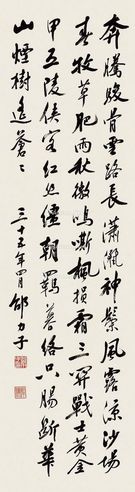 奔騰駿骨雲路長瀟灑神鬃風露涼沙場
春牧草肥雨秋徼鳴嘶楓損霜三關戰士黃金
甲五陵俠客紅絲韁朝羈暮絡只腸斷華
山煙樹遙蒼々 三十五年四月 邵力子